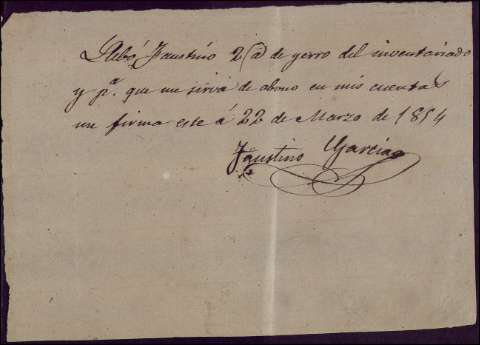 Llebó Faustino 2 @ de yerro del inventariado
y pª. que me sirva de abono en mis cuentas
me firma este á 22 de Marzo de 1854
Faustino Garcia